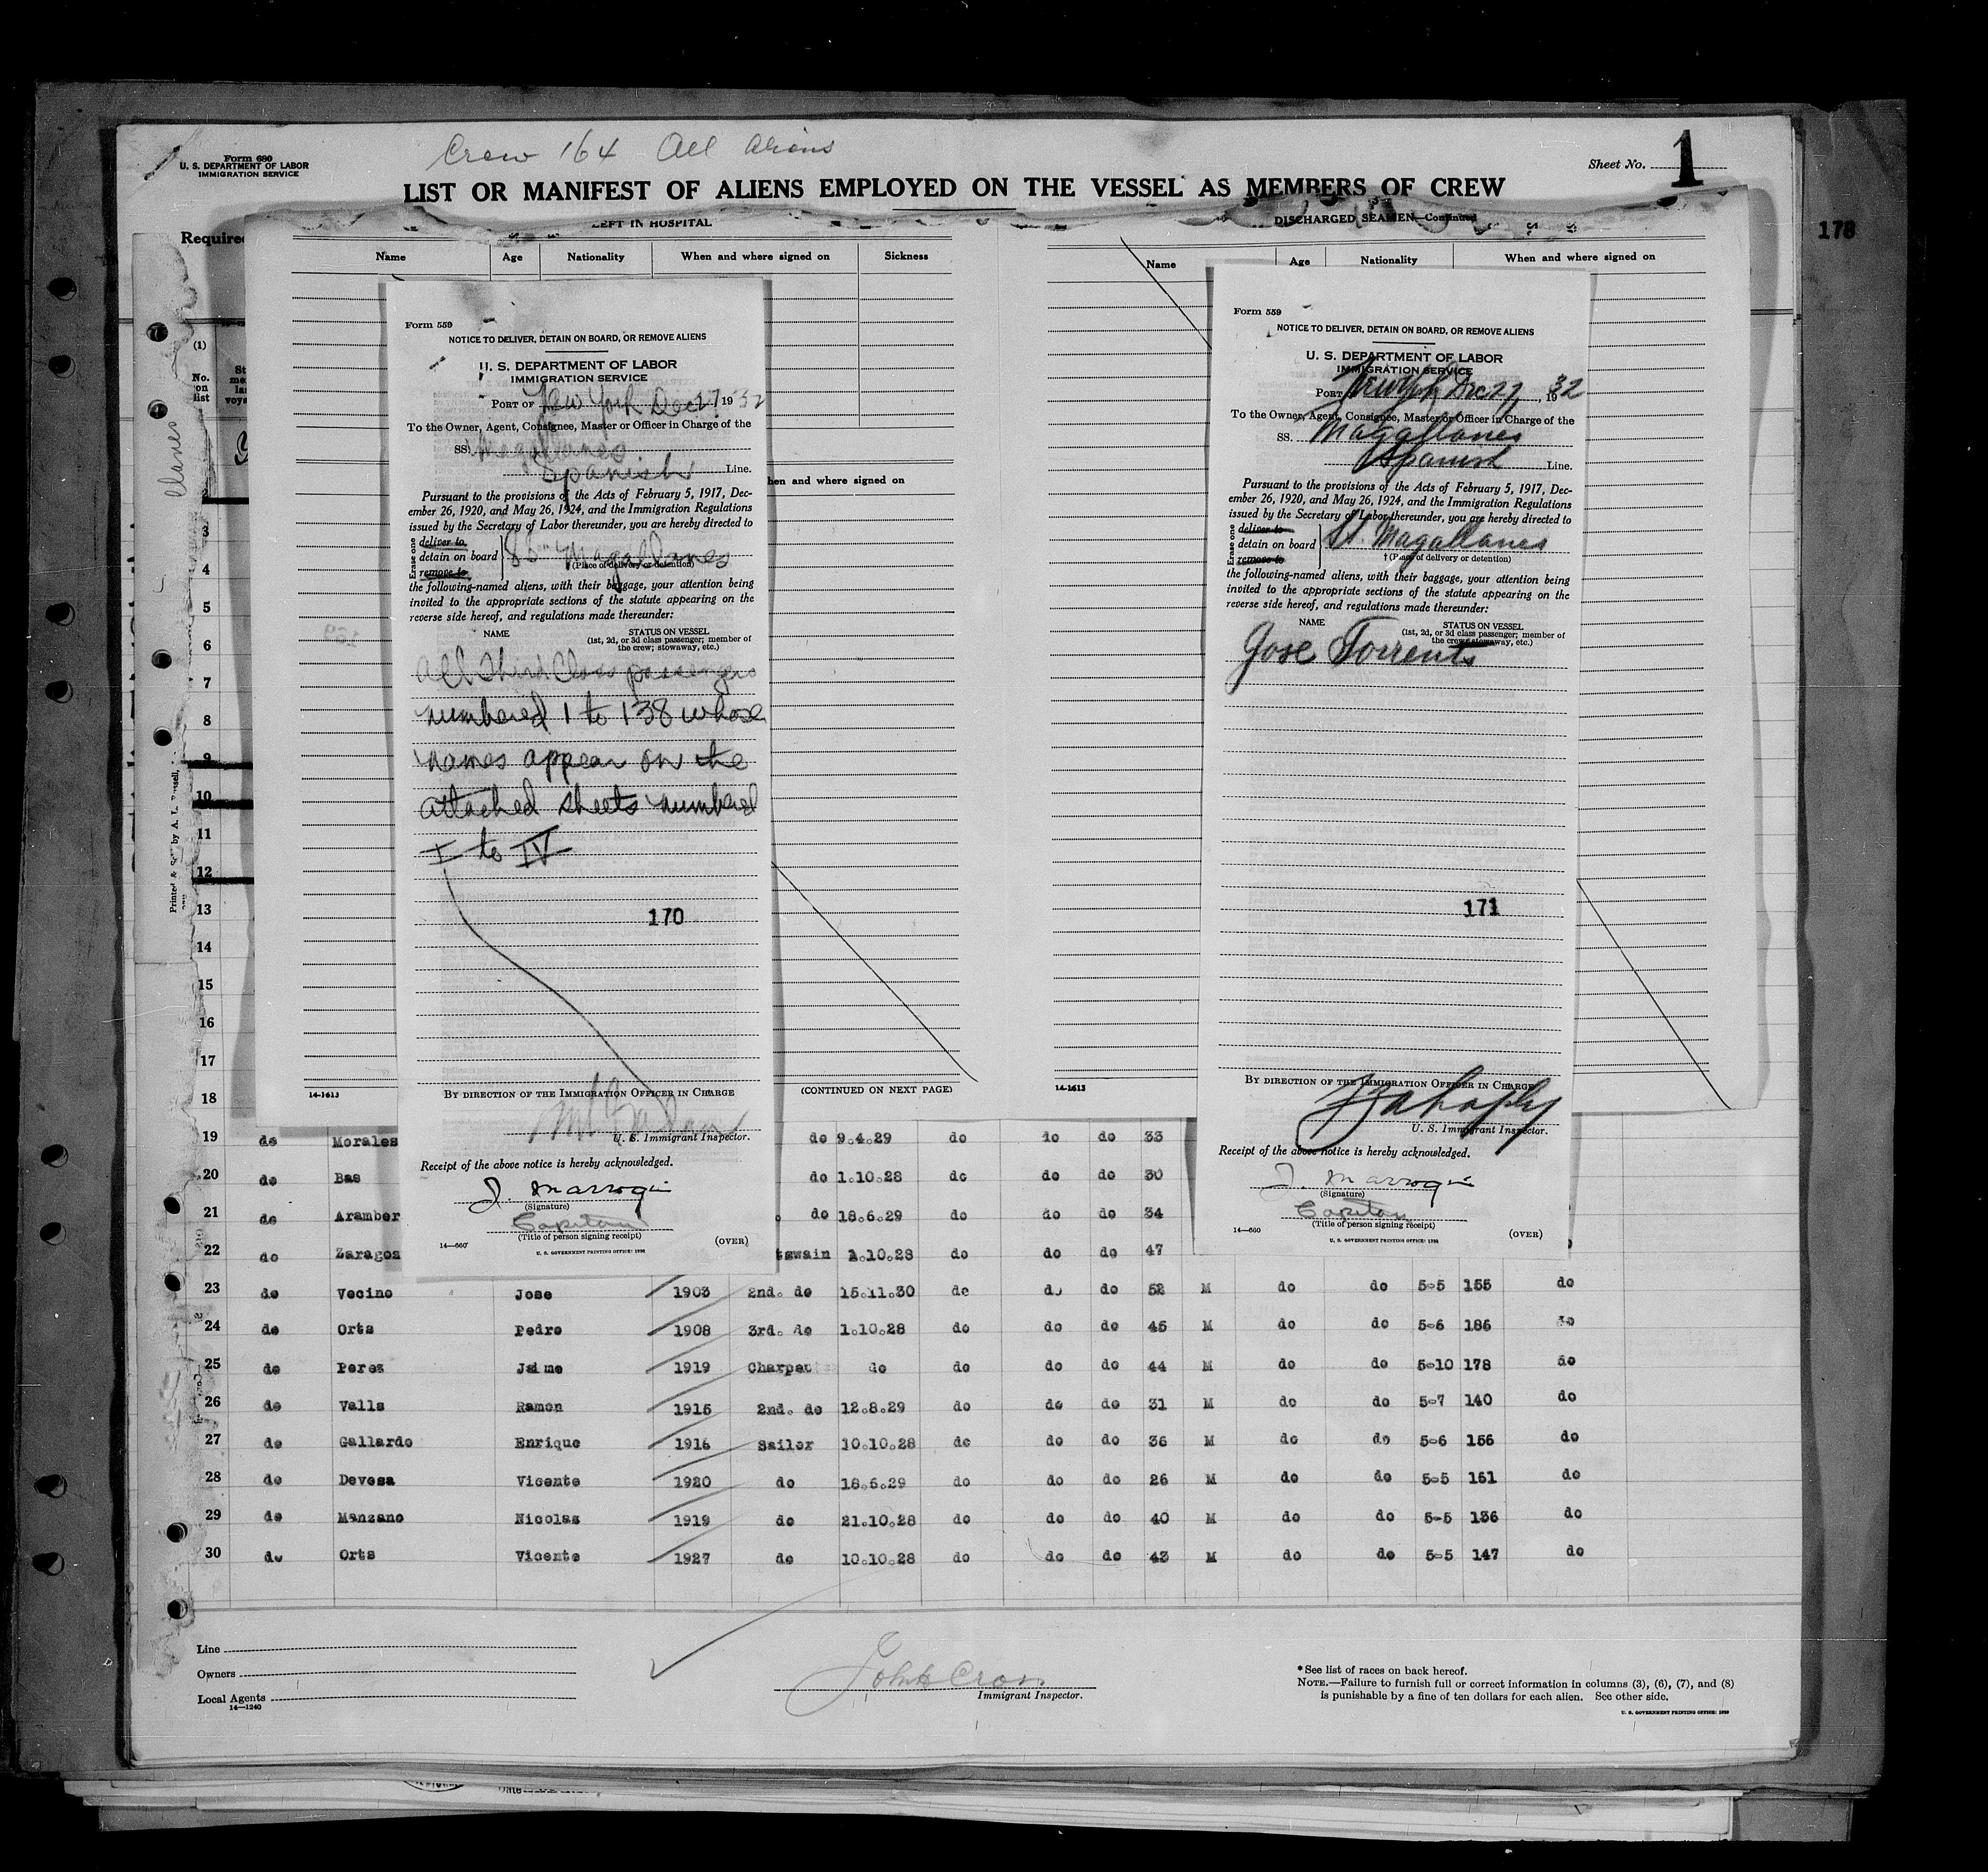 Crew 164 All Aliens
Form 680
U. S. DEPARTMENT OF LABOR
IMMIGRATION SERVICE
Sheet No. 1
LIST OR MANIFEST OF ALIENS EMPLOYED ON THE VESSEL AS MEMBERS OF CREW
178
Required
LEFT IN HOSPITAL
Name Age Nationality When and where signed on Sickness
hen and where signed on
DISCHARGED SEAMEN—Continued
Name Age Nationality When and where signed on
(1)
No.
on
list
Form 559
NOTICE TO DELIVER, DETAIN ON BOARD, OR REMOVE ALIENS
U. S. DEPARTMENT OF LABOR
IMMIGRATION SERVICE
PORT OF New York Dec 27 1932
To the Owner, Agent, Consignee, Master or Officer in Charge of the
SS. Magallanes
Spanish Line.
Pursuant to the provisions of the Acts of February 5, 1917, Dec-
ember 26, 1920, and May 26, 1924, and the Immigration Regulations
issued by the Secretary of Labor thereunder, you are hereby directed to
Erase one
deliver to
detain on board SS Magallanes
(Place of delivery or detention)
remove to
the following-named aliens, with their baggage, your attention being
invited to the appropriate sections of the statute appearing on the
reverse side hereof, and regulations made thereunder:
NAME STATUS ON VESSEL
(1st, 2d, or 3d class passenger; member of
the crew; stowaway, etc.)
All Third Class passengers
numbered 1 to 138 whose
names appear on the
attached sheets numbered
I to IV
170
BY DIRECTION OF THE IMMIGRATION OFFICER IN CHARGE
U. S. Immigrant Inspector.
Receipt of the above notice is hereby acknowledged.
J. Marroqin
(Signature)
Capitan
(Title of person signing receipt)
14—660 (OVER)
U. S. GOVERNMENT PRINTING OFFICE: 1932
Form 559
NOTICE TO DELIVER, DETAIN ON BOARD, OR REMOVE ALIENS
U. S. DEPARTMENT OF LABOR
IMMIGRATION SERVICE
PORT New York Dec 27, 1932
To the Owner, Agent, Consignee, Master or Officer in Charge of the
SS. Magallanes
Spanish Line.
Pursuant to the provisions of the Acts of February 5, 1917, Dec-
ember 26, 1920, and May 26, 1924, and the Immigration Regulations
issued by the Secretary of Labor thereunder, you are hereby directed to
Erase one
deliver to
detain on board St. Magallanes
† (Place of delivery or detention)
remove to
the following-named aliens, with their baggage, your attention being
invited to the appropriate sections of the statute appearing on the
reverse side hereof, and regulations made thereunder:
NAME STATUS ON VESSEL
(1st, 2d, or 3d class passenger; member of
the crew; stowaway, etc.)
Jose Torrents
171
BY DIRECTION OF THE IMMIGRATION OFFICER IN CHARGE
U. S. Immigrant Inspector.
Receipt of the above notice is hereby acknowledged.
J. Marroqin
(Signature)
Capitan
(Title of person signing receipt)
14—660 (OVER)
U. S. GOVERNMENT PRINTING OFFICE: 1932
14-1613 (CONTINUED ON NEXT PAGE) 14-1613
3
4
5
6
7
8
9
10
11
12
13
14
15
16
17
18
19 do Morales do 9.4.29 do do do 33
20 do Bas do 1.10.28 do do do 30
21 do Aramber do 18.6.29 do do do 34
22 do Zaragoz tswain 1.10.28 do do do 47
23 do Vecino Jose 1903 2nd. do 15.11.30 do do do 52 M do do 5-5 155 do
24 do Orts Pedro 1908 3rd. do 1.10.28 do do do 45 M do do 5-6 186 do
25 do Perez Jaime 1919 Charpet do do do do 44 M do do 5-10 178 do
26 do Valls Ramon 1915 2nd. do 12.8.29 do do do 31 M do do 5-7 140 do
27 do Gallardo Enrique 1916 Sailor 10.10.28 do do do 36 M do do 5-6 156 do
28 do Devesa Vicente 1920 do 18.6.29 do do do 26 M do do 5-5 161 do
29 do Manzano Nicolas 1919 do 21.10.28 do do do 40 M do do 5-5 136 do
30 do Orts Vicente 1927 do 10.10.28 do do do 43 M do do 5-5 147 do
Line
Owners
Local Agents
14—1240
John Cron
Immigrant Inspector.
*See list of races on back hereof.
NOTE.—Failure to furnish full or correct information in columns (3), (6), (7), and (8)
is punishable by a fine of ten dollars for each alien. See other side.
U. S. GOVERNMENT PRINTING OFFICE: 1930